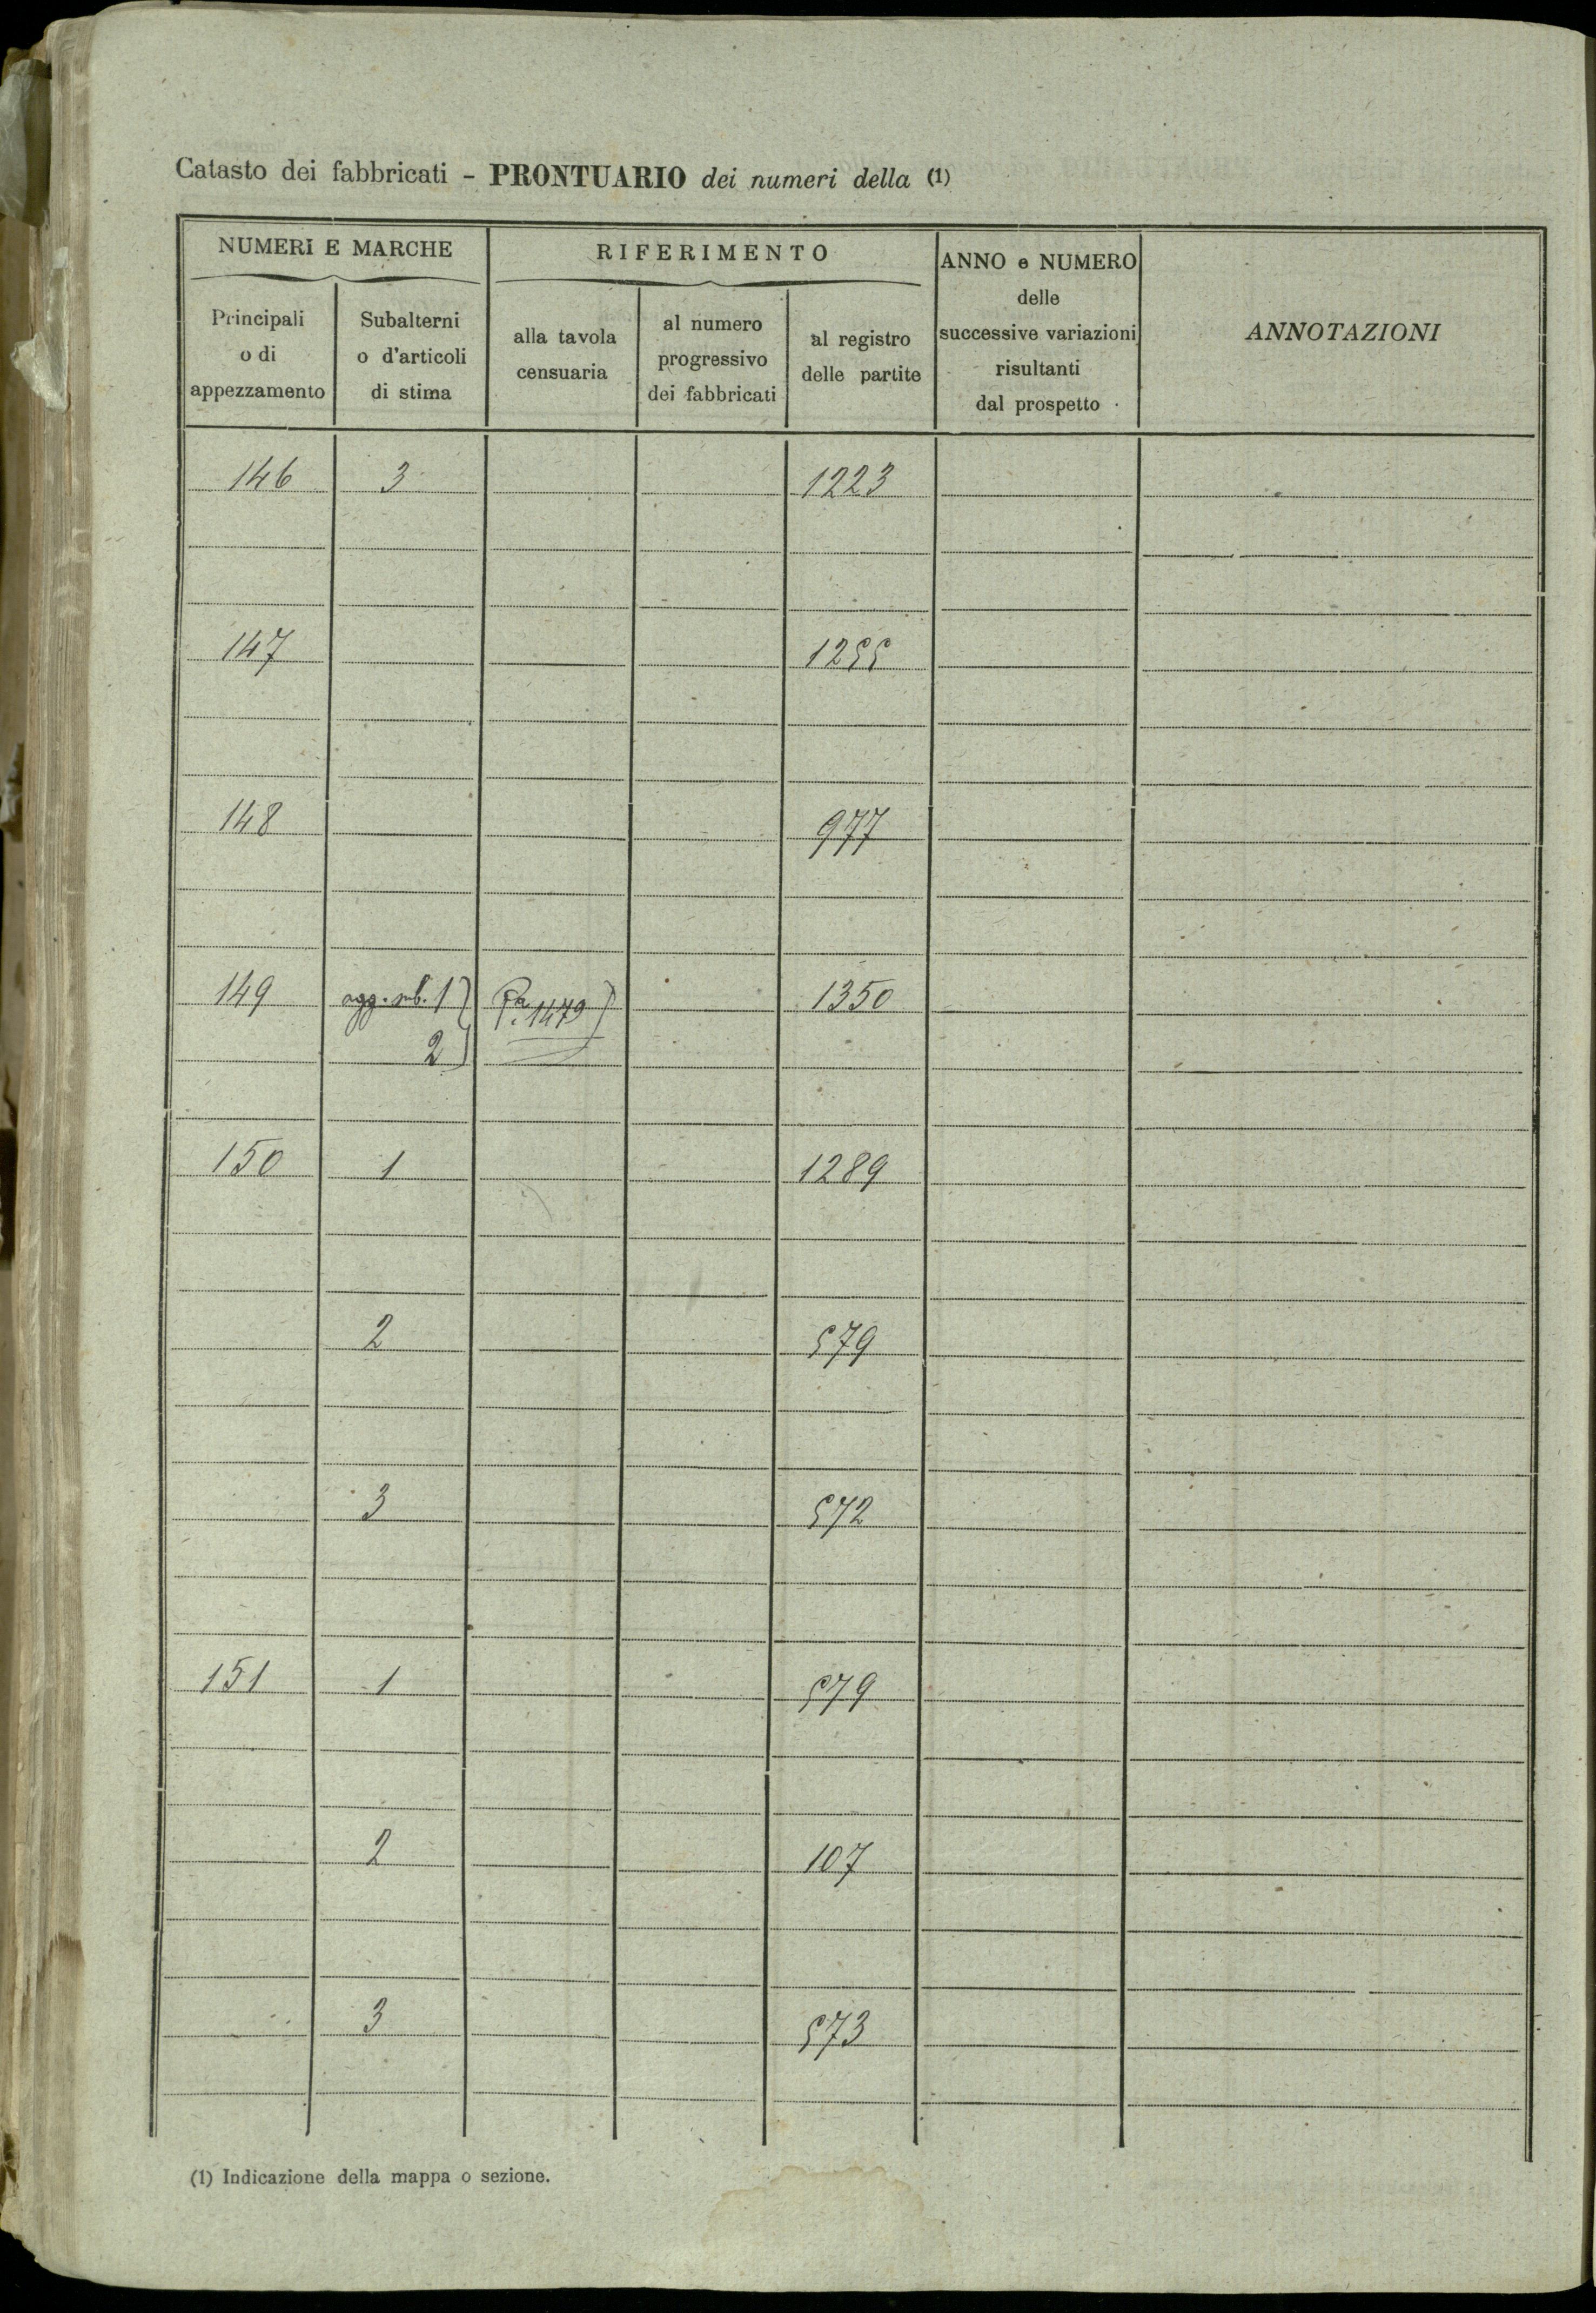 Catasto dei fabbricati – PRONTUARIO dei numeri della (1)
NUMERI E MARCHE
RIFERIMENTO
ANNO e NUMERO
delle
successive variazioni
risultanti
dal prospetto
ANNOTAZIONI
Principali
o di
appezzamento
Subalterni
o d'articoli
di stima
alla tavola
censuaria
al numero
progressivo
dei fabbricati
al registro
delle partite
146 3 1223
147 1255
148 977
149 agg. sub. 1 Pa. 1479 1350
2
150 1 1289
2 579
3 572
151 1 579
2 107
3 573
(1) Indicazione della mappa o sezione.